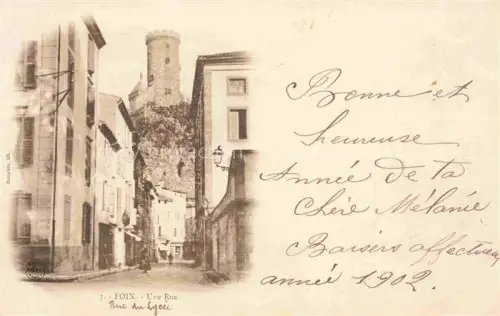 Bonne et
heureuse
Année de ta
Chère Mélanie
Baisers affectueux
année 1902.
7. - FOIX. - Une Rue
Rue du Lycée